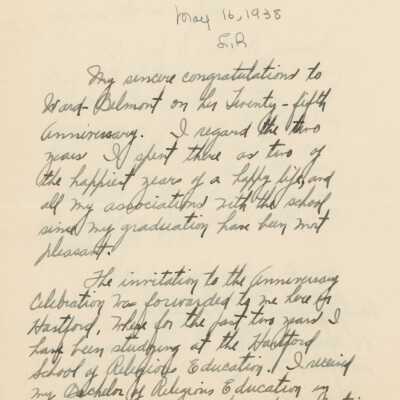 May 16, 1938
S.R
My sincere congratulations to
Ward-Belmont on her Twenty-fifth
Anniversary. I regard the two
years I spent there as two of
the happiest years of a happy life, and
all my associations with the school
since my graduation have been most
pleasant.
The invitation to the Anniversary
Celebration was forwarded to me here in
Hartford, where for the past two years I
have been studying at the Hartford
School of Religious Education. I received
my Bachelor of Religious Education in